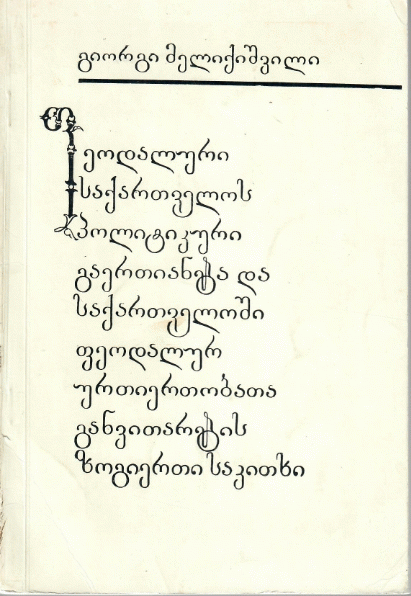 გიორგი მელიქიშვილი
ფეოდალური
საქართველოს
პოლიტიკური
გაერთიანება და
საქართველოში
ფეოდალურ
ურთიერთობათა
განვითარების
ზოგიერთი საკითხი